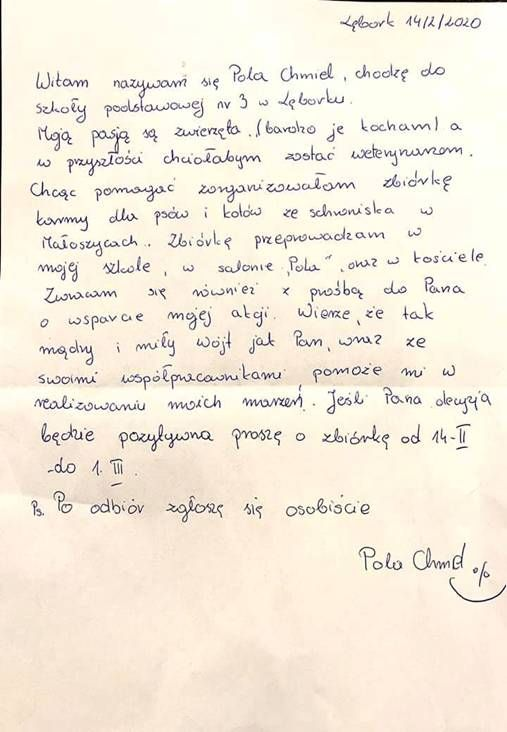 Lębork 14/2/2020
Witam nazywam się Pola Chmiel, chodzę do
szkoły podstawowej nr 3 w Lęborku.
Moją pasją są zwierzęta. (bardzo je kocham) a
w przyszłości chciałabym zostać weterynarzem.
Chcąc pomagać zorganizowałam zbiórkę
karmy dla psów i kotów ze schroniska w
Małoszycach. Zbiórkę przeprowadzam w
mojej szkole, w salonie „Pola", oraz w kościele.
Zwracam się również z prośbą do Pana
o wsparcie mojej akcji. Wierzę, że tak
mądry i miły wójt jak Pan, wraz ze
swoimi współpracownikami pomoże mi w
realizowaniu moich marzeń. Jeśli Pana decyzja
będzie pozytywna proszę o zbiórkę od 14-II
-do 1. III.
Ps. Po odbiór zgłoszę się osobiście
Pola Chmiel